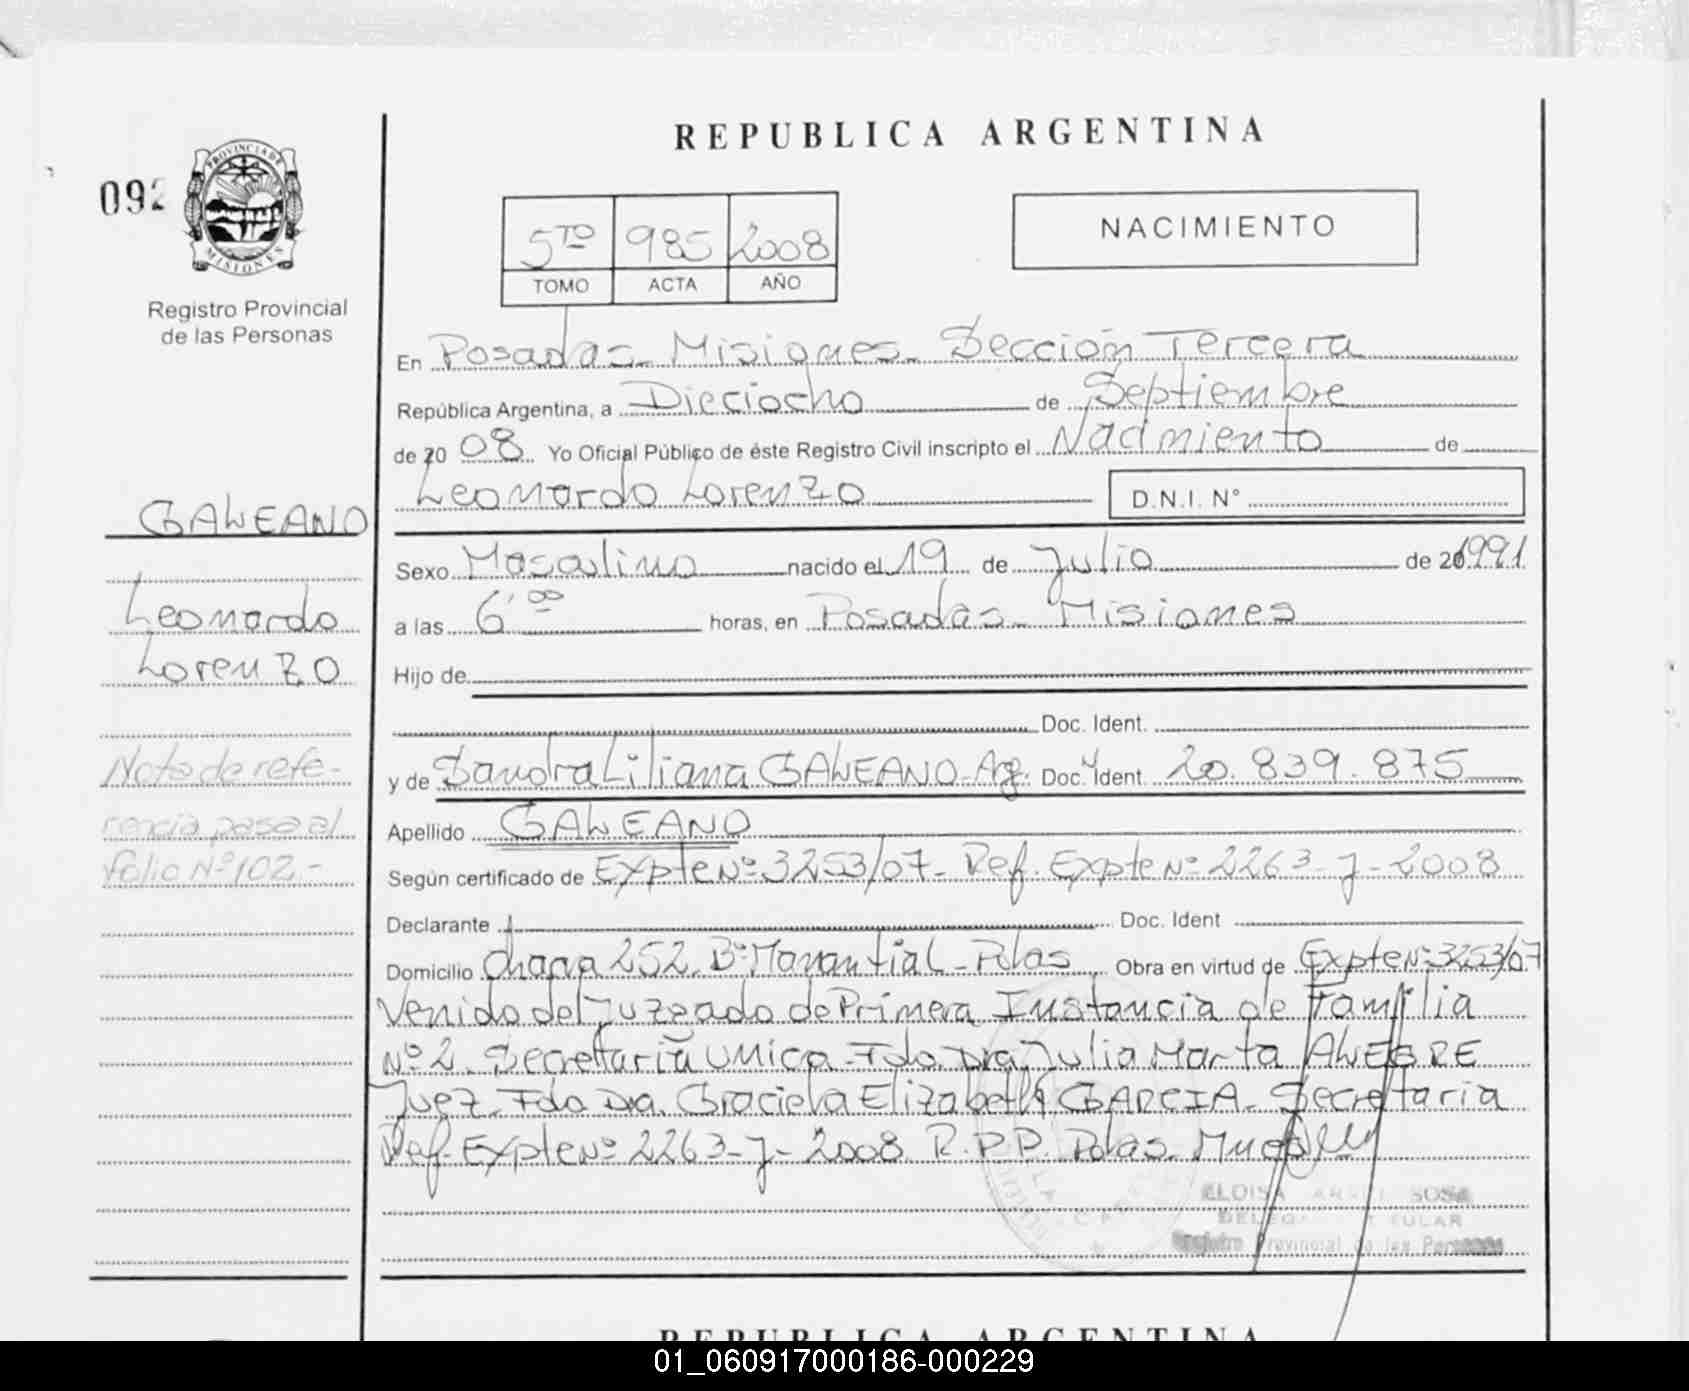 REPUBLICA ARGENTINA
092
PROVINCIA DE
MISIONES
Registro Provincial
de las Personas
5TO 985 2008
TOMO ACTA AÑO
NACIMIENTO
En Posadas - Misiones - Sección Tercera
República Argentina, a Dieciocho de Septiembre
de 20 08 Yo Oficial Público de éste Registro Civil inscripto el Nacimiento de
Leonardo Lorenzo D.N.I. N°
GALEANO
Sexo Masculino nacido el 19 de Julio de 20 1991
Leonardo
a las 6,00 horas, en Posadas - Misiones
Lorenzo
Hijo de
Doc. Ident.
Nota de refe-
y de Sandra Liliana GALEANO - Arg. Doc. Ident. 20.839.875
rencia pasa al
Apellido GALEANO
folio Nº 102.-
Según certificado de Expte Nº 3253/07 - Ref. Expte Nº 2263-J-2008
Declarante Doc. Ident
Domicilio Chacra 252. Bº Manantial - Pdas Obra en virtud de Expte Nº 3253/07
Venido del Juzgado de Primera Instancia de Familia
Nº 2. Secretaría Unica - Fdo. Dra. Julia Marta ALEGRE
Juez - Fdo Dra. Graciela Elizabeth GARCIA - Secretaria
Ref - Expte Nº 2263-J-2008 R.P.P. Pdas.
ELOISA SOSA
DELEGADA TITULAR
Registro Provincial de las Personas
REPUBLICA ARGENTINA
01_060917000186-000229